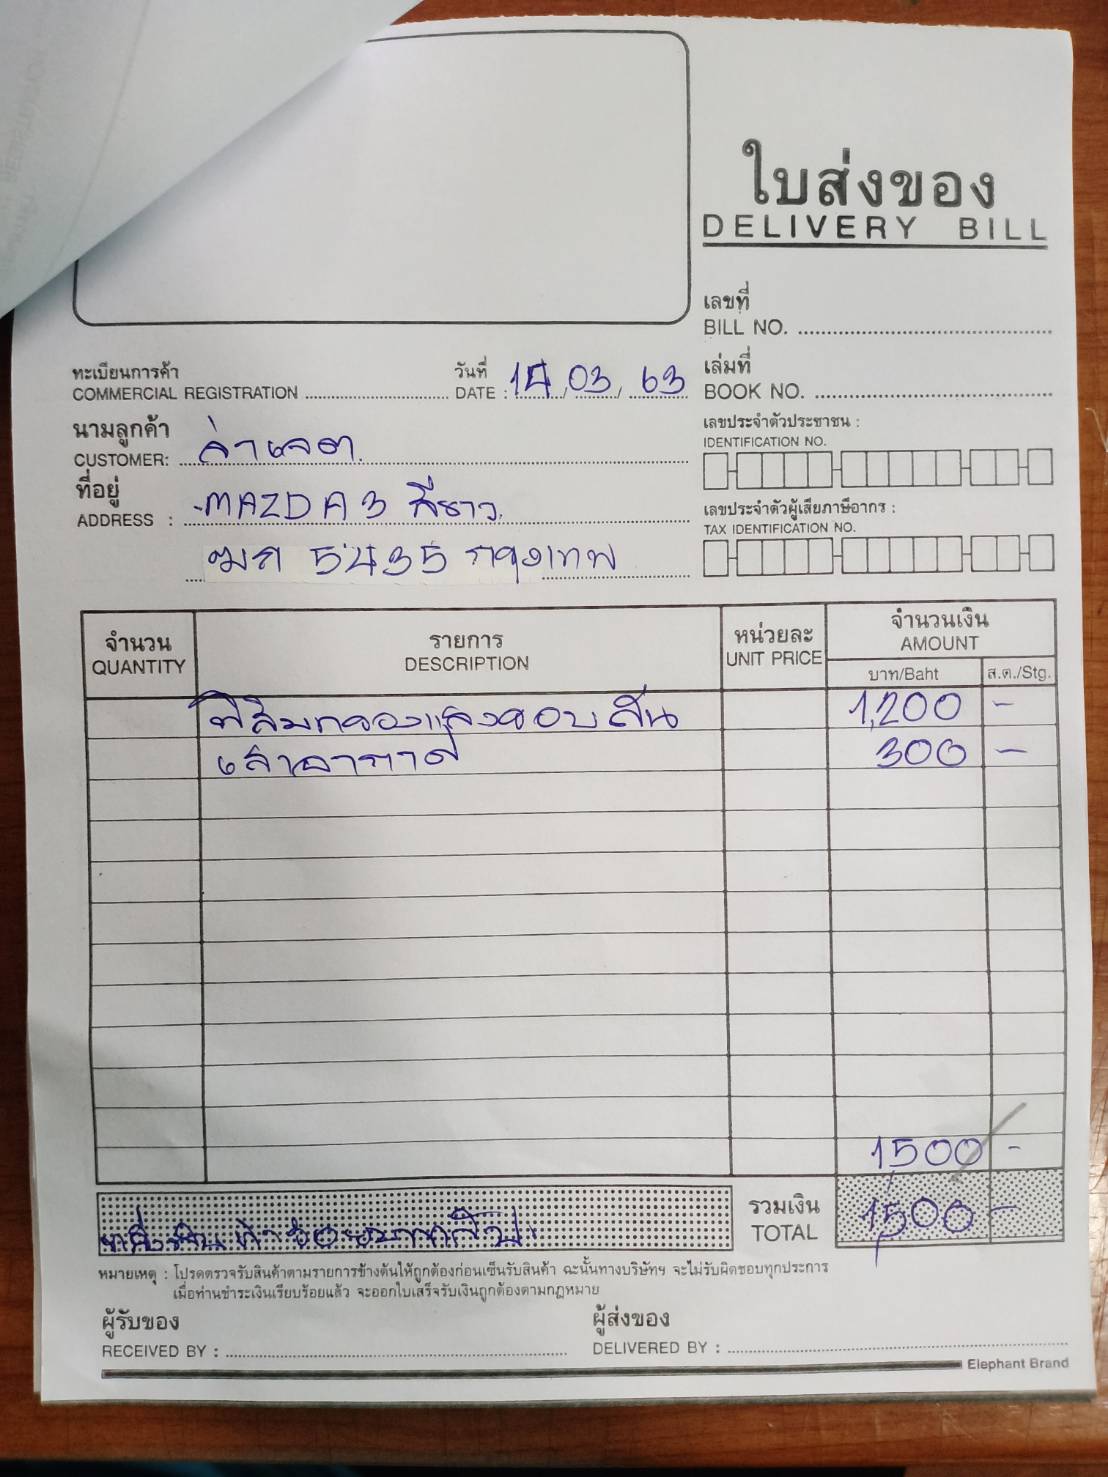 ใบส่งของ
DELIVERY BILL
เลขที่
BILL NO.
ทะเบียนการค้า
COMMERCIAL REGISTRATION
วันที่
DATE : 14/03/63
เล่มที่
BOOK NO.
นามลูกค้า
CUSTOMER:
เลขประจำตัวประชาชน :
IDENTIFICATION NO.
ที่อยู่
ADDRESS : -MAZDA 3 สีขาว
5435 กรุงเทพ
เลขประจำตัวผู้เสียภาษีอากร :
TAX IDENTIFICATION NO.
จำนวน
QUANTITY
รายการ
DESCRIPTION
หน่วยละ
UNIT PRICE
จำนวนเงิน
AMOUNT
บาท/Baht ส.ต./Stg.
ฟิล์มกรองแสง 1,200 -
เสาอากาศ 300 -
1500 -
รวมเงิน
TOTAL
1,500 -
หมายเหตุ : โปรดตรวจรับสินค้าตามรายการข้างต้นให้ถูกต้องก่อนเซ็นรับสินค้า ฉะนั้นทางบริษัทฯ จะไม่รับผิดชอบทุกประการ
เมื่อท่านชำระเงินเรียบร้อยแล้ว จะออกใบเสร็จรับเงินถูกต้องตามกฎหมาย
ผู้รับของ
RECEIVED BY :
ผู้ส่งของ
DELIVERED BY :
Elephant Brand